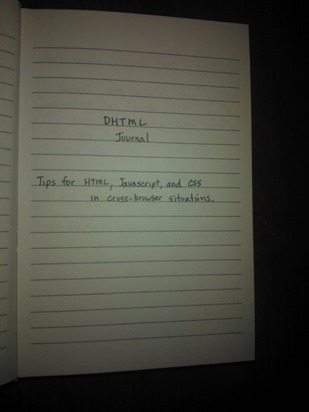 DHTML
Journal
Tips for HTML, Javascript, and CSS
in cross-browser situations.